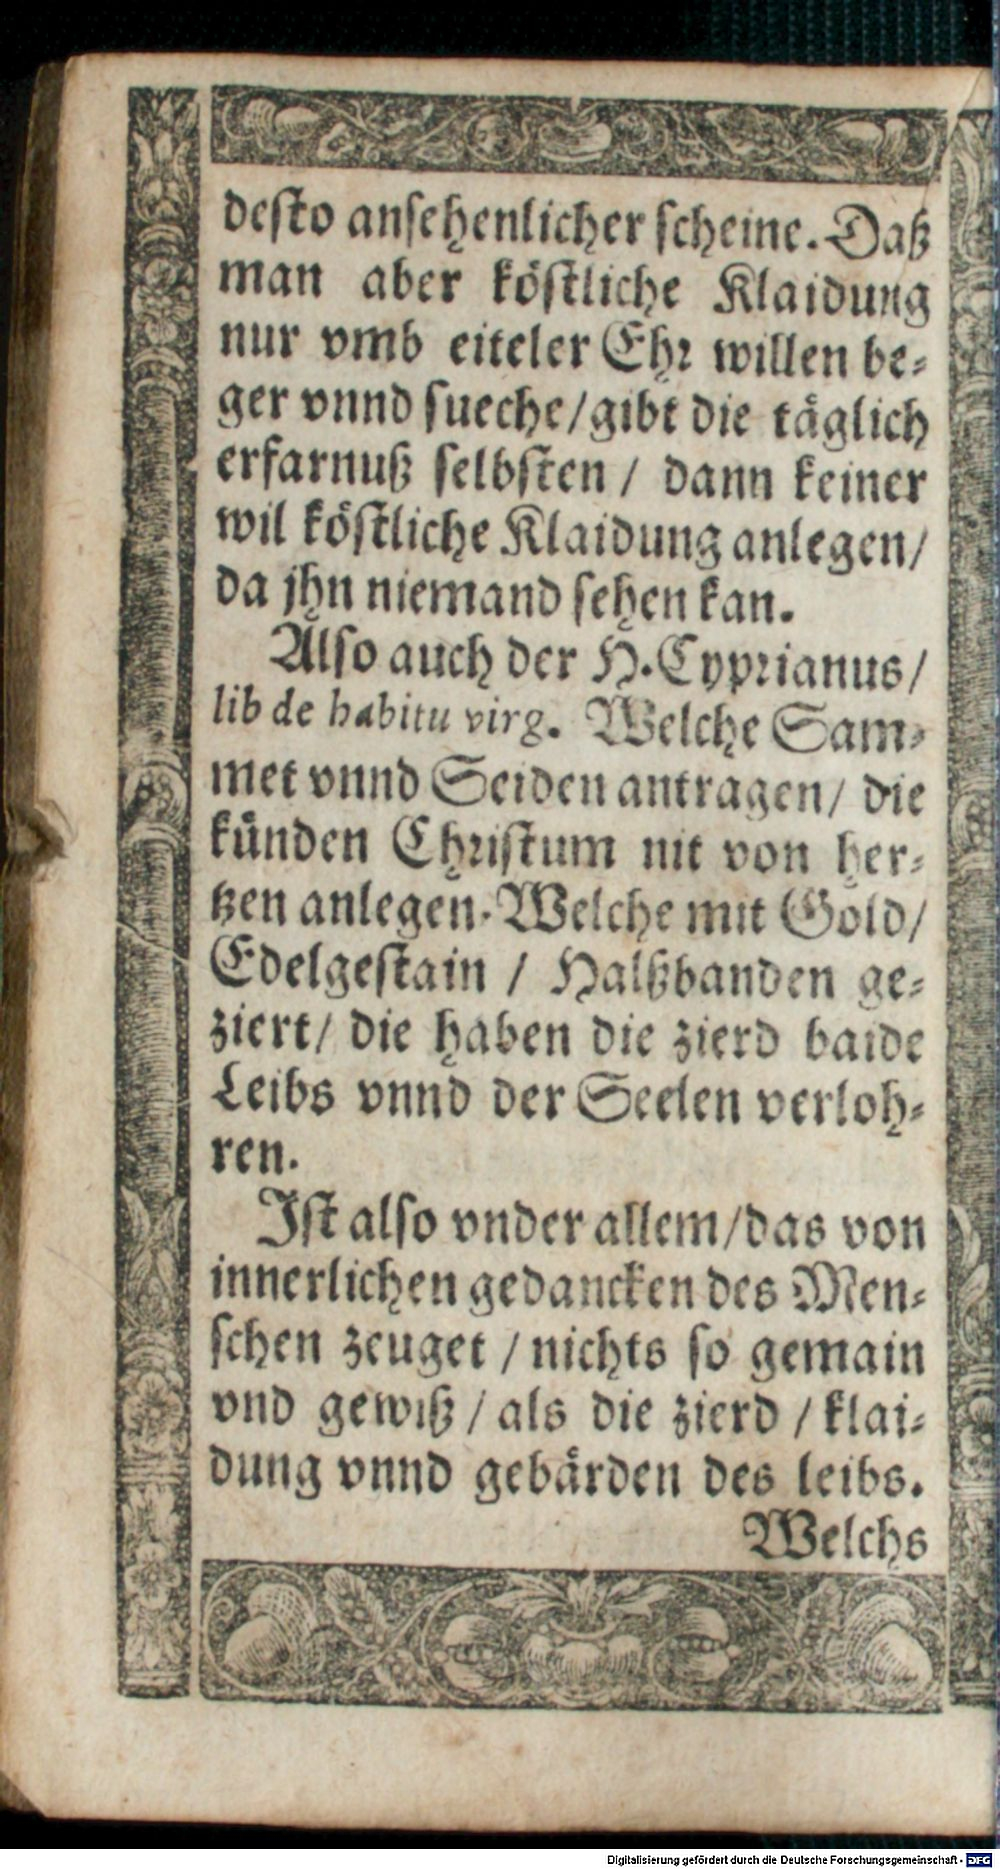 desto ansehenlicher scheine. Daß
man aber köstliche Klaidung
nur vmb eiteler Ehr willen be-
ger vnnd sueche/gibt die täglich
erfarnuß selbsten / dann keiner
wil köstliche Klaidung anlegen/
da jhn niemand sehen kan.
Also auch der H. Cyprianus/
lib de habitu virg. Welche Sam-
met vnnd Seiden antragen/ die
künden Christum nit von her-
tzen anlegen. Welche mit Gold/
Edelgestain / Halßbanden ge-
ziert/ die haben die zierd baide
Leibs vnnd der Seelen verloh-
ren.
Ist also vnder allem/das von
innerlichen gedancken des Men-
schen zeuget / nichts so gemain
vnd gewiß / als die zierd / klai-
dung vnnd gebärden des leibs.
Welchs
Digitalisierung gefördert durch die Deutsche Forschungsgemeinschaft - DFG